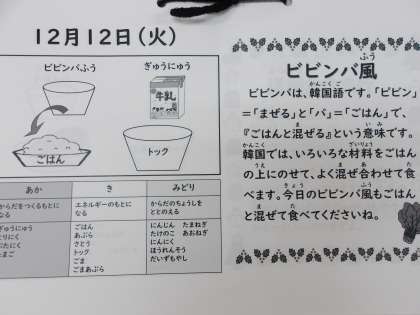 12月12日（火）
ビビンバふう
ぎゅうにゅう
牛乳
ごはん
トック
あか
き
みどり
からだをつくるもとに
なる
エネルギーのもとに
なる
からだのちょうしを
ととのえる
ぎゅうにゅう
とりにく
ぶたにく
たまご
ごはん
あぶら
さとう
トック
ごま
ごまあぶら
にんじん たまねぎ
たけのこ あおねぎ
にんにく
ほうれんそう
だいずもやし
ビビンバ風
ビビンバは、韓国語です。「ビビン」
＝「まぜる」と「バ」＝「ごはん」で、
『ごはんと混ぜる』という意味です。
韓国では、いろいろな材料をごはん
の上にのせて、よく混ぜ合わせて食
べます。今日のビビンバ風もごはん
と混ぜて食べてくださいね。